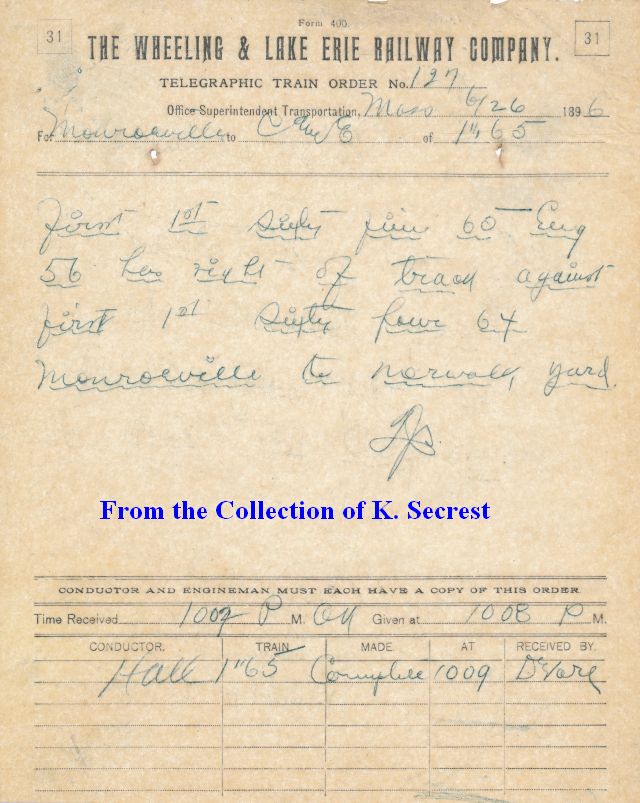 Form 400.
31 31
THE WHEELING & LAKE ERIE RAILWAY COMPANY.
TELEGRAPHIC TRAIN ORDER No. 127
Office Superintendent Transportation, Mass 6/26 1896
For Monroeville to C & E of 1st 65
First 1st Sixty five 65 Eng
56 has right of track against
first 1st Sixty four 64
Monroeville to Norwalk yard.
From the Collection of K. Secrest
CONDUCTOR AND ENGINEMAN MUST EACH HAVE A COPY OF THIS ORDER
Time Received 1007 P M. OK Given at 1008 P M.
CONDUCTOR. TRAIN. MADE. AT RECEIVED BY.
Hall 1st 65 Complete 1009 DeVore